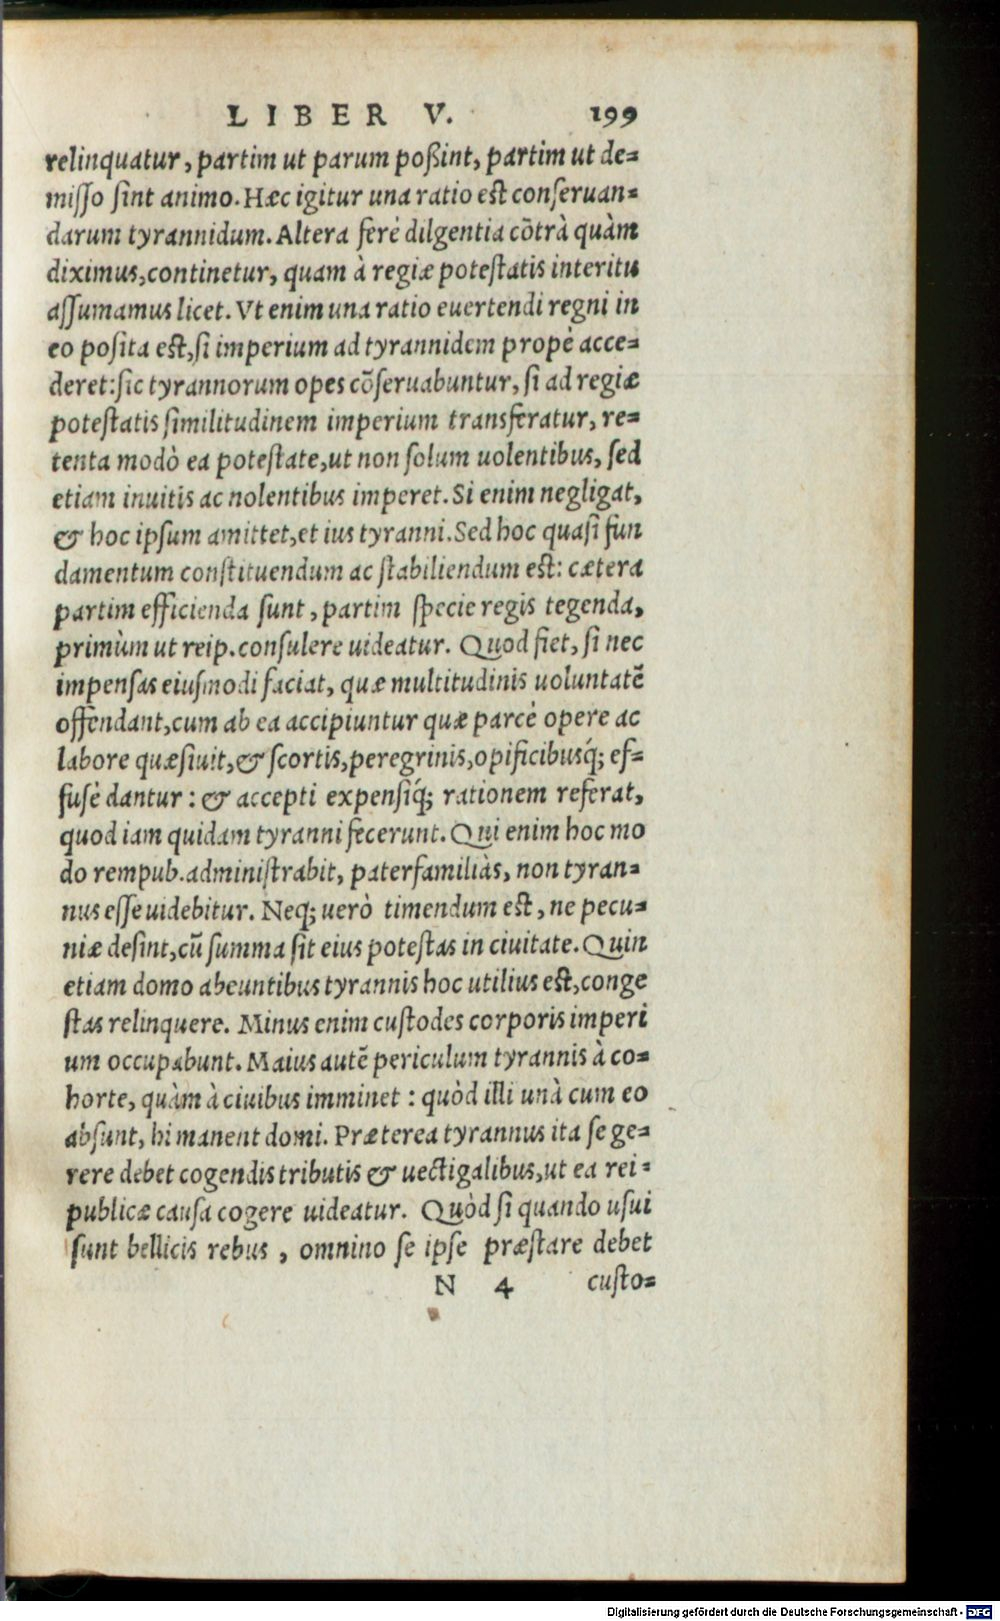 LIBER V. 199
relinquatur, partim ut parum poßint, partim ut de=
misso sint animo. Hæc igitur una ratio est conseruan=
darum tyrannidum. Altera ferè dilgentia cõtrà quàm
diximus, continetur, quam à regiæ potestatis interitu
assumamus licet. Vt enim una ratio euertendi regni in
eo posita est, si imperium ad tyrannidem propè acce=
deret: sic tyrannorum opes cõseruabuntur, si ad regiæ
potestatis similitudinem imperium transferatur, re=
tenta modò ea potestate, ut non solum uolentibus, sed
etiam inuitis ac nolentibus imperet. Si enim negligat,
& hoc ipsum amittet, et ius tyranni. Sed hoc quasi fun
damentum constituendum ac stabiliendum est: cætera
partim efficienda sunt, partim specie regis tegenda,
primùm ut reip. consulere uideatur. Quod fiet, si nec
impensas eiusmodi faciat, quæ multitudinis uoluntatẽ
offendant, cum ab ea accipiuntur quæ parcè opere ac
labore quæsiuit, & scortis, peregrinis, opificibusq́; ef=
fusè dantur: & accepti expensiq́; rationem referat,
quod iam quidam tyranni fecerunt. Qui enim hoc mo
do rempub. administrabit, paterfamiliàs, non tyran=
nus esse uidebitur. Neq; uerò timendum est, ne pecu=
niæ desint, cũ summa sit eius potestas in ciuitate. Quin
etiam domo abeuntibus tyrannis hoc utilius est, conge
stas relinquere. Minus enim custodes corporis imperi
um occupabunt. Maius autẽ periculum tyrannis à co=
horte, quàm à ciuibus imminet: quòd illi unà cum eo
absunt, hi manent domi. Præterea tyrannus ita se ge=
rere debet cogendis tributis & uectigalibus, ut ea rei=
publicæ causa cogere uideatur. Quòd si quando usui
sunt bellicis rebus, omnino se ipse præstare debet
N 4 custo=
Digitalisierung gefördert durch die Deutsche Forschungsgemeinschaft - DFG